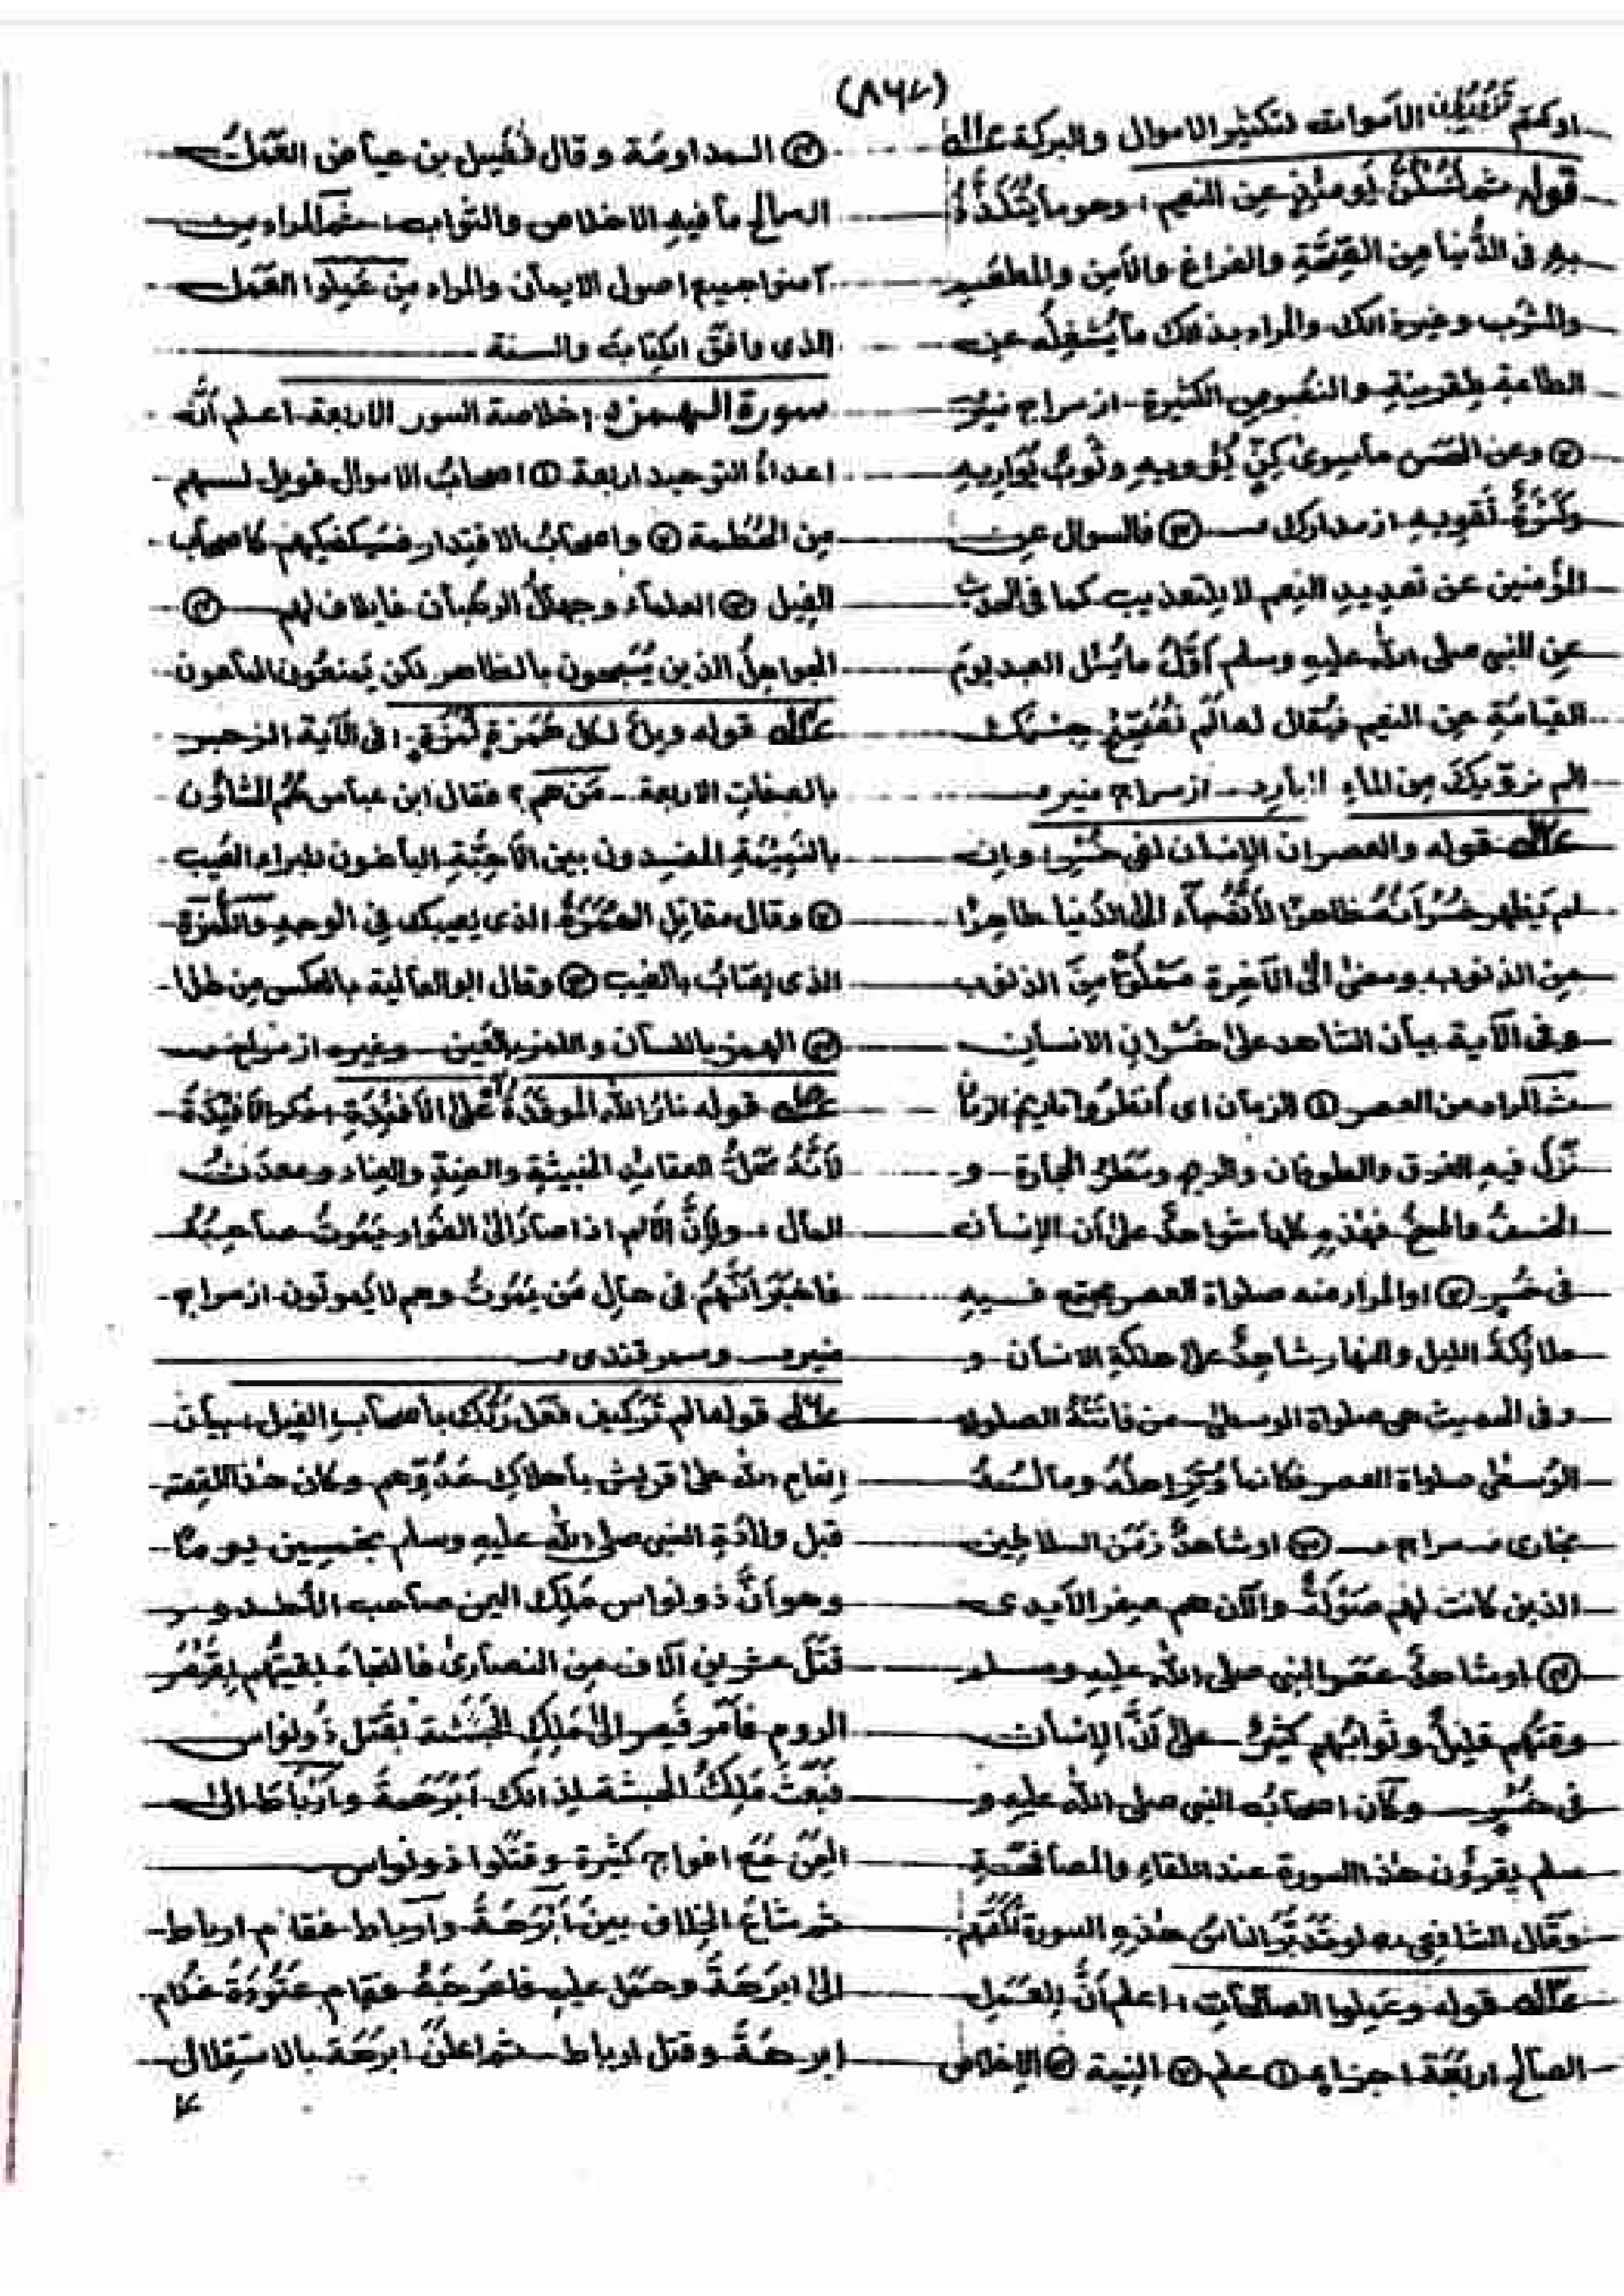 (۸۶۷)
الأموات لتكثير الاموال والبركة
قوله ثم لتسئلن يومئذ عن النعيم : وهو ما يتلذذ
به فى الدنيا من الصحة والفراغ والأمن والمطعم
والمشرب وغير ذالك والمراد بذالك ما يشغله عن
الطاعة بقرينة والنصوص الكثيرة از سراج منير
② وعن الحسن ما سوى كن يؤويه وثوب يواريه
وكسرة تقويه از مدارك ③ فالسوال عن
المؤمنين عن تعديد النعم لا بتعذيب كما فى الحديث
عن النبى صلى الله عليه وسلم أول ما يسئل العبد يوم
القيامة عن النعيم فيقال له الم نصحح جسمك
الم نرويك من الماء البارد از سراج منير
قوله والعصر ان الإنسان لفى خسر : وان
لم يظهر خسرانه ظاهرا لأنه جاء الى الدنيا طاهرا
من الذنوب ومضى الى الآخرة مملوء من الذنوب
وفى الآية بيان الشاهد على خسران الانسان
ثم المراد من العصر ① الزمان اى أنظروا تاريخ ازمنا
نزل فيه الغرق والطوفان والريح ومطر الحجارة و
الخسف والمسخ فهذه كلها شواهد على أن الإنسان
فى خسر ② او المراد منه صلواة العصر يجتمع فيه
ملائكة الليل والنهار شاهد على هلاكة الانسان و
وفى الحديث هى صلواة الوسطى من فاتته الصلواة
الوسطى صلواة العصر فكانما وتر اهله وماله
بخارى سراج ③ او شاهد زمن السلاطين
الذين كانت لهم صولة والآن هم صفر الأيدى
④ او شاهد عصر النبى صلى الله عليه وسلم
وقتهم قليل وثوابهم كثير على أن الإنسان
فى خسر وكان اصحاب النبى صلى الله عليه و
سلم يقرؤن هذ السورة عند اللقاء والمصافحة
وقال الشافعى لو تدبر الناس هذه السورة لكفتهم
قوله وعملوا الصالحات : اعلم أن للعمل
الصالح اربعة اجزاء ① علم ② النية ③ الإخلاص
④ المداومة وقال فضيل بن عياض العمل
الصالح ما فيه الاخلاص والثواب : ثم المراد من
آمنوا جميع اصول الايمان والمراد من عملوا العمل
الذى وافق الكتاب والسنة
سورة الهمزه : خلاصة السور الاربعة اعلم أن
اعداء التوحيد اربعة ① اصحاب الاموال فويل لهم
من الحطمة ② واصحاب الاقتدار فسيكفيكهم كاصحاب
الفيل ③ العلماء وجهال الرهبان فايلاف لهم ④
الجواهل الذين يسبحون بالظاهر لكن يمنعون الماعون
قوله ويل لكل همزة لمزة : فى الآية الزجر
بالصفات الاربعة من هم ؟ فقال ابن عباس هم المشاؤن
بالنميمة المفسدون بين الأحبة الباغون للبراء العيب
② وقال مقاتل الهمزة الذى يعيبك فى الوجه واللمزة
الذى يعاب بالغيب ③ وقال ابو العالية بالعكس من هذا
④ الهمز باللسان واللمز بالعين وغيره از سراج
قوله نار الله الموقدة على الأفئدة : ذكر الأفئدة
لأنه محل العقائد الخبيثة والضد والعناد ومحبة
المال : ولأن الألم اذا صار الى الفؤاد يموت صاحبه
فاخبر أنهم فى حال من يموت وهم لا يموتون از سراج
منير وسمرقندى
قوله الم تر كيف فعل ربك بأصحاب الفيل : بيان
إنعام الله على قريش بأهلاك عدوهم وكان هذ القصة
قبل ولادة النبى صلى الله عليه وسلم بخمسين يوما
وهو أن ذو نواس ملك اليمن صاحب الأخدود
قتل عشرين آلاف من النصارى فالتجاء بقيتهم بقيصر
الروم فأمر قيصر الى ملك الحبشة بقتل ذو نواس
فبعث ملك الحبشة لذالك أبرهة وأرباط الى
اليمن مع افواج كثيرة وقتلوا ذو نواس
ثم شاع الخلاف بين أبرهة وأرباط فقام ارباط
الى ابرهة وحمل عليه فاعرجه فقام عتودة غلام
ابرهة وقتل ارباط ثم اعلن ابرهة بالاستقلال